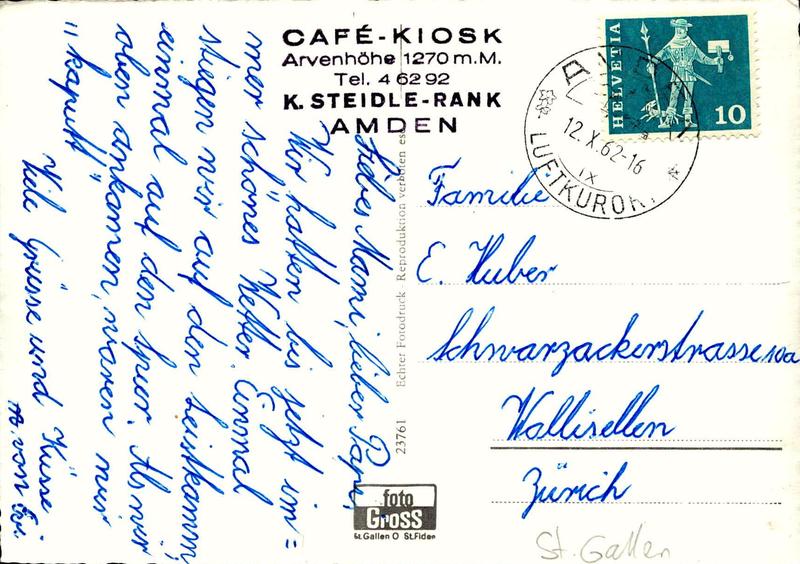 CAFÉ-KIOSK
Arvenhöhe 1270 m.M.
Tel. 4 62 92
K. STEIDLE-RANK
AMDEN
HELVETIA
10
AMDEN
12.X.62-16
IX
LUFTKURORT
Liebes Mami, lieber Papi,
Wir hatten bis jetzt im=
mer schönes Wetter. Einmal
stiegen wir auf den Leistkamm,
einmal auf den Speer. Als wir
oben ankamen, waren wir
"kaputt"
Viele Grüsse und Küsse
von Evi.
Familie
E. Huber
Schwarzackerstrasse 10a
Wallisellen
Zürich
St. Gallen
23761 Echter Fotodruck Reproduktion verboten
foto
GROSS
St.Gallen O St.Fiden